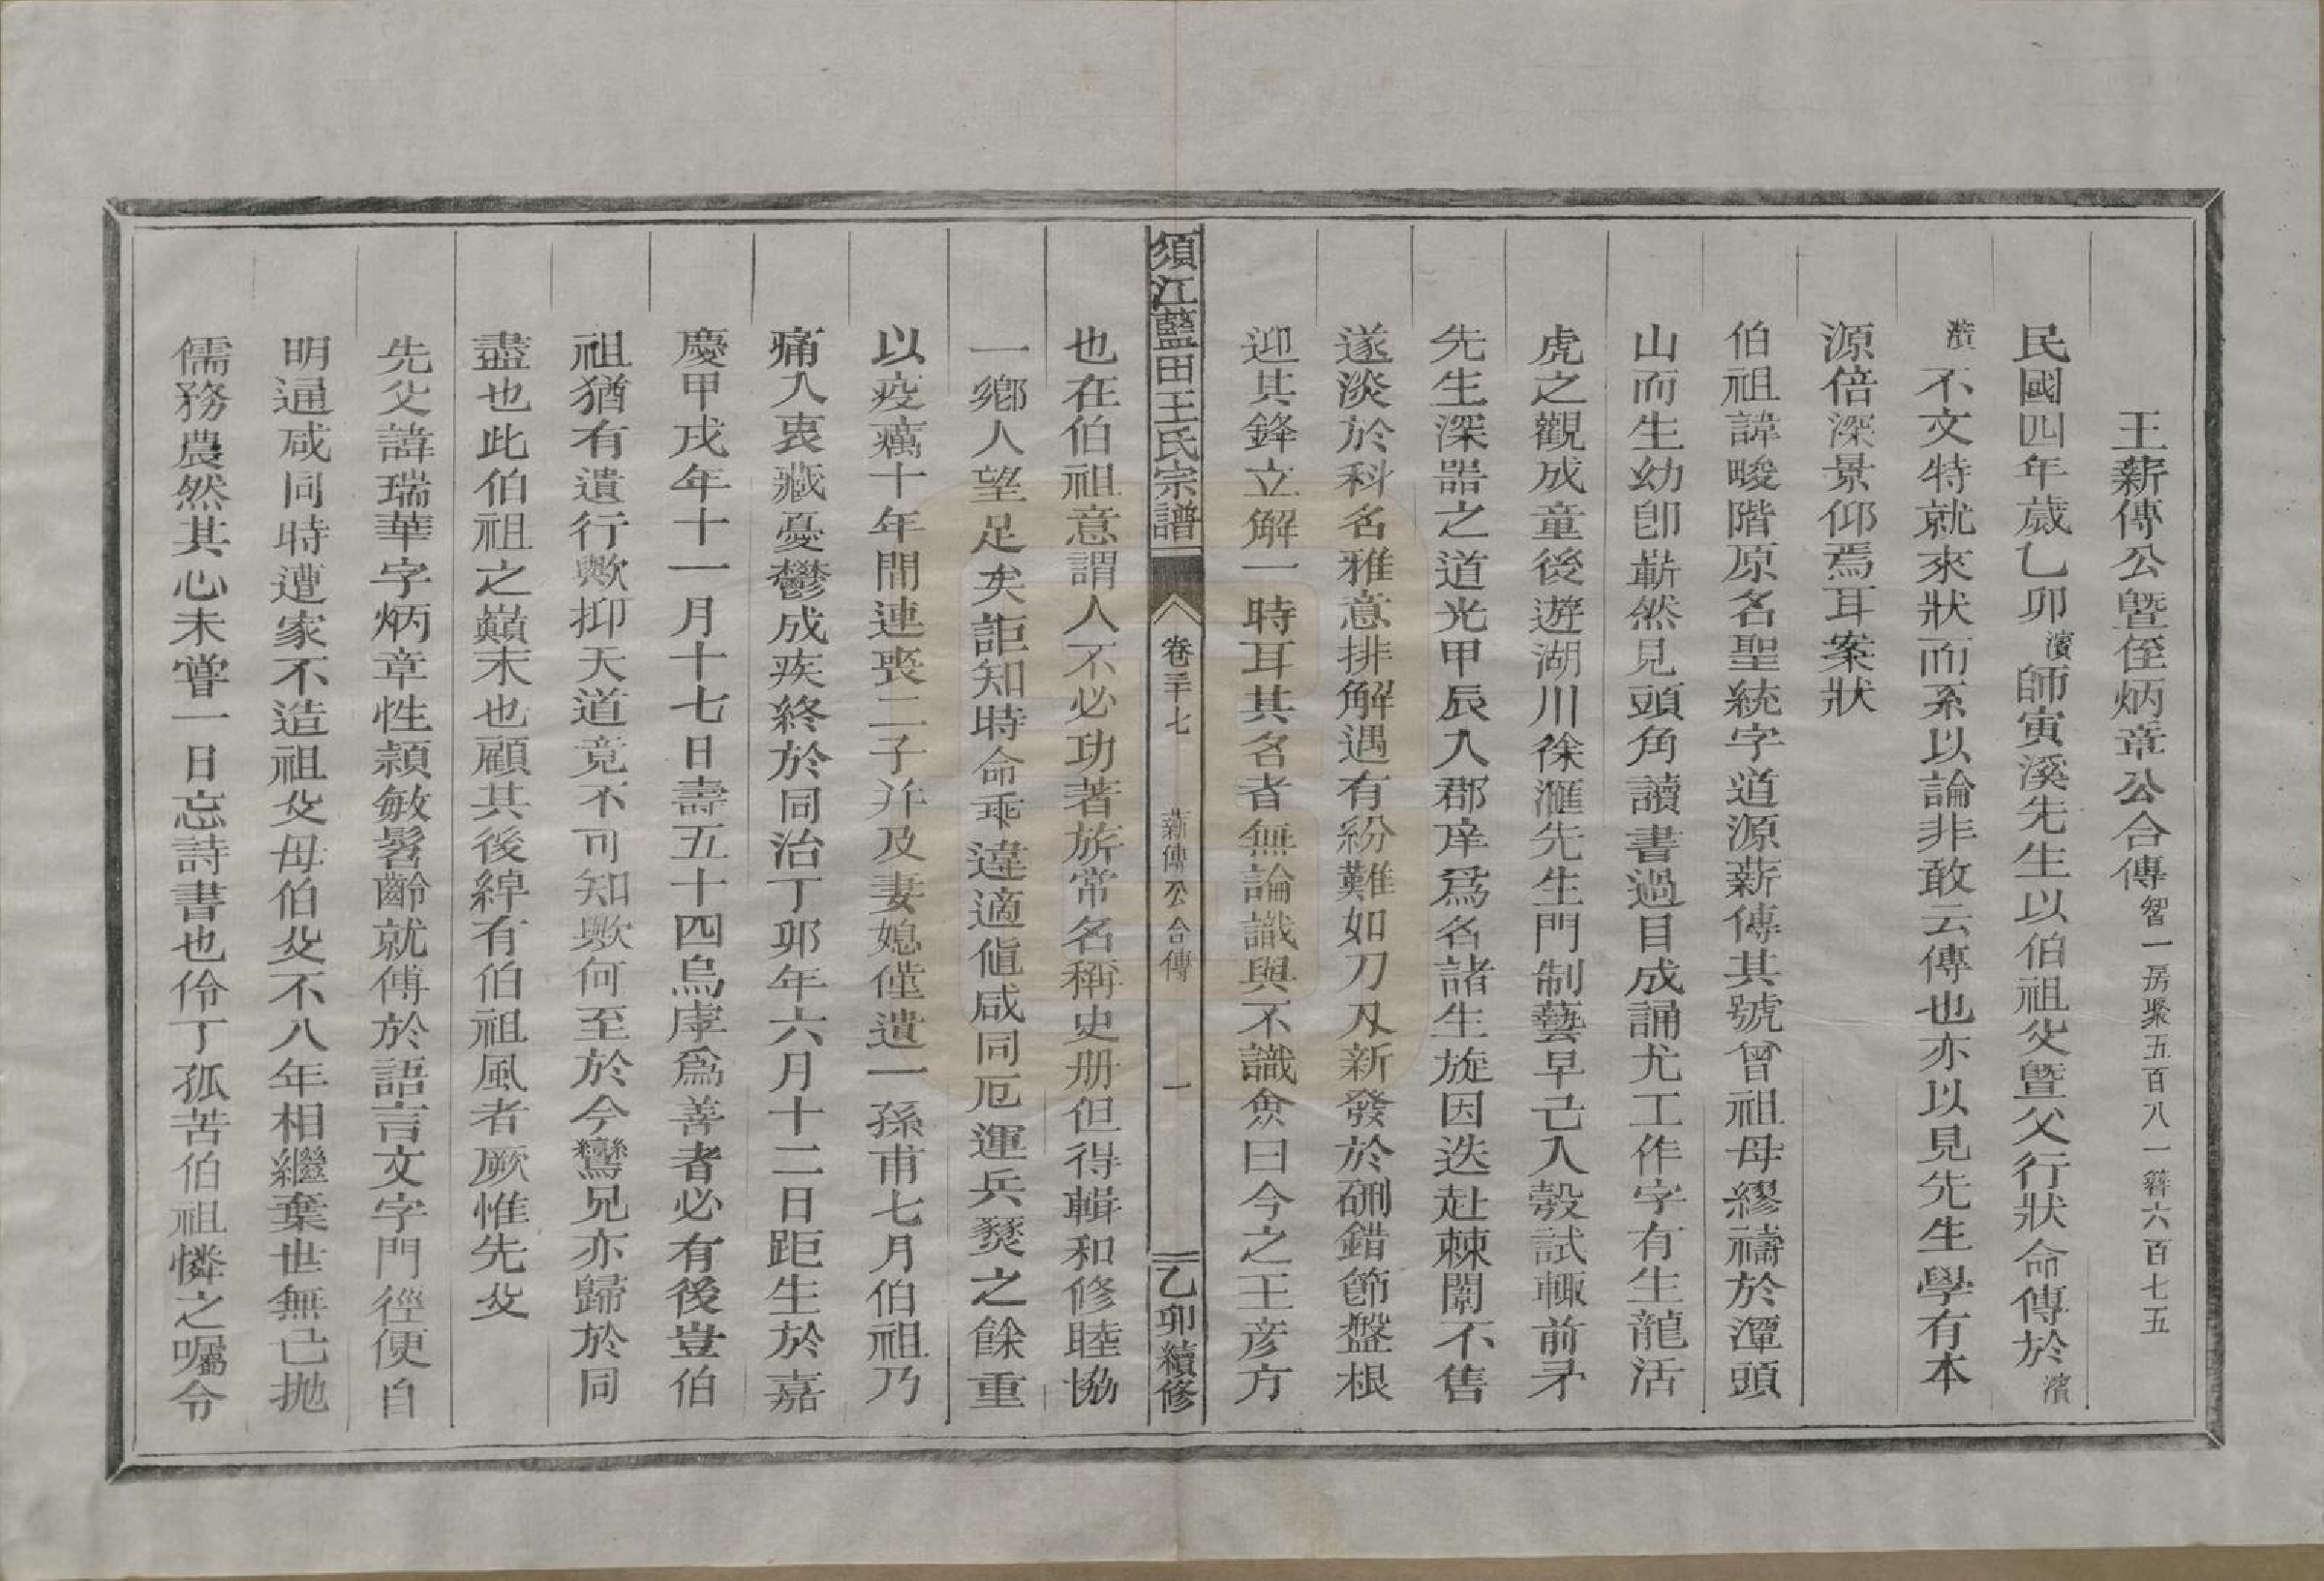 王薪傳公曁侄炳章公合傳智一房聚五百八一簪六百七五
民國四年歲乙卯濱師寅溪先生以伯祖父曁父行狀命傳於濱
濱不文特就來狀而系以論非敢云傳也亦以見先生學有本
源倍深景仰焉耳案狀
伯祖諱畯階原名聖統字道源薪傳其號曾祖母繆禱於潭頭
山而生幼卽嶄然見頭角讀書過目成誦尤工作字有生龍活
虎之觀成童後遊湖川徐滙先生門制藝早已入彀試輒前矛
先生深器之道光甲辰入郡庠爲名諸生旋因迭赴棘闈不售
遂淡於科名雅意排解遇有紛難如刀刄新發於硎錯節盤根
迎其鋒立解一時耳其名者無論識與不識僉曰今之王彦方
須江藍田王氏宗譜 卷三十七 薪傳公合傳 一 乙卯續修
也在伯祖意謂人不必功著旂常名稱史册但得輯和修睦協
一鄉人望足矣詎知時命乖違適値咸同厄運兵燹之餘重
以疫癘十年間連喪二子并及妻媳僅遺一孫甫七月伯祖乃
痛入衷藏憂鬱成疾終於同治丁卯年六月十二日距生於嘉
慶甲戌年十一月十七日壽五十四烏虖爲善者必有後豈伯
祖猶有遺行歟抑天道竟不可知歟何至於今鸞兄亦歸於同
盡也此伯祖之巔末也顧其後綽有伯祖風者厥惟先父
先父諱瑞華字炳章性穎敏髫齡就傅於語言文字門徑便自
明通咸同時遭家不造祖父母伯父不八年相繼棄世無已抛
儒務農然其心未嘗一日忘詩書也伶丁孤苦伯祖憐之囑令